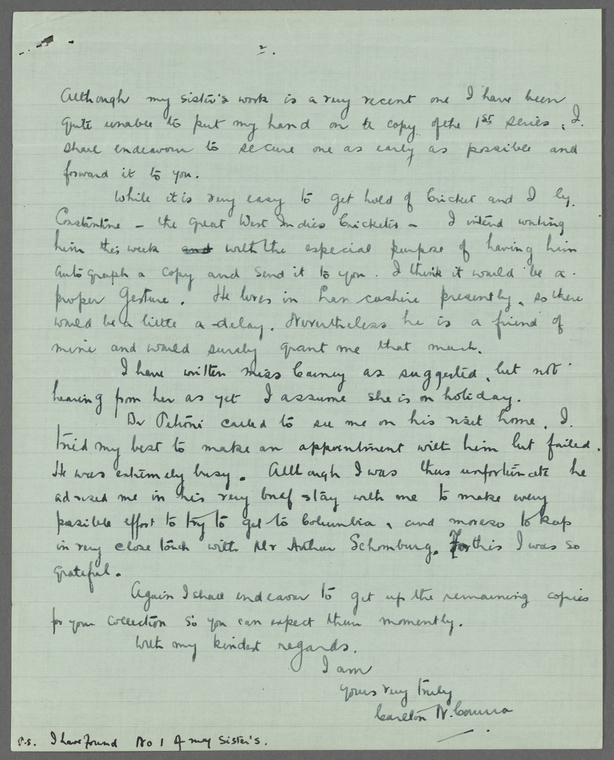 2.
Although my sister's work is a very recent one I have been
quite unable to put my hand on a copy of the 1st series. I
shall endeavour to secure one as early as possible and
forward it to you.
While it is very easy to get hold of Cricket and I by
Constantine – the Great West Indies Cricketer – I intend writing
him this week and with the especial purpose of having him
autograph a copy and send it to you. I think it would be a
proper gesture. He lives in Lancashire presently, so there
would be a little a delay. Nevertheless he is a friend of
mine and would surely grant me that much.
I have written miss Carney as suggested, but not
hearing from her as yet I assume she is on holiday.
Dr called to see me on his visit home. I
tried my best to make an appointment with him but failed.
He was extremely busy. Although I was thus unfortunate he
advised me in his very brief stay with me to make every
possible effort to try to get to Columbia, and moreso to keep
in very close touch with Mr Arthur Schomburg. For this I was so
grateful.
Again I shall endeavour to get up the remaining copies
for your collection so you can expect them momently.
With my kindest regards.
I am
Yours very truly
Carlton N.
P.S. I have found No 1 of my sister's.